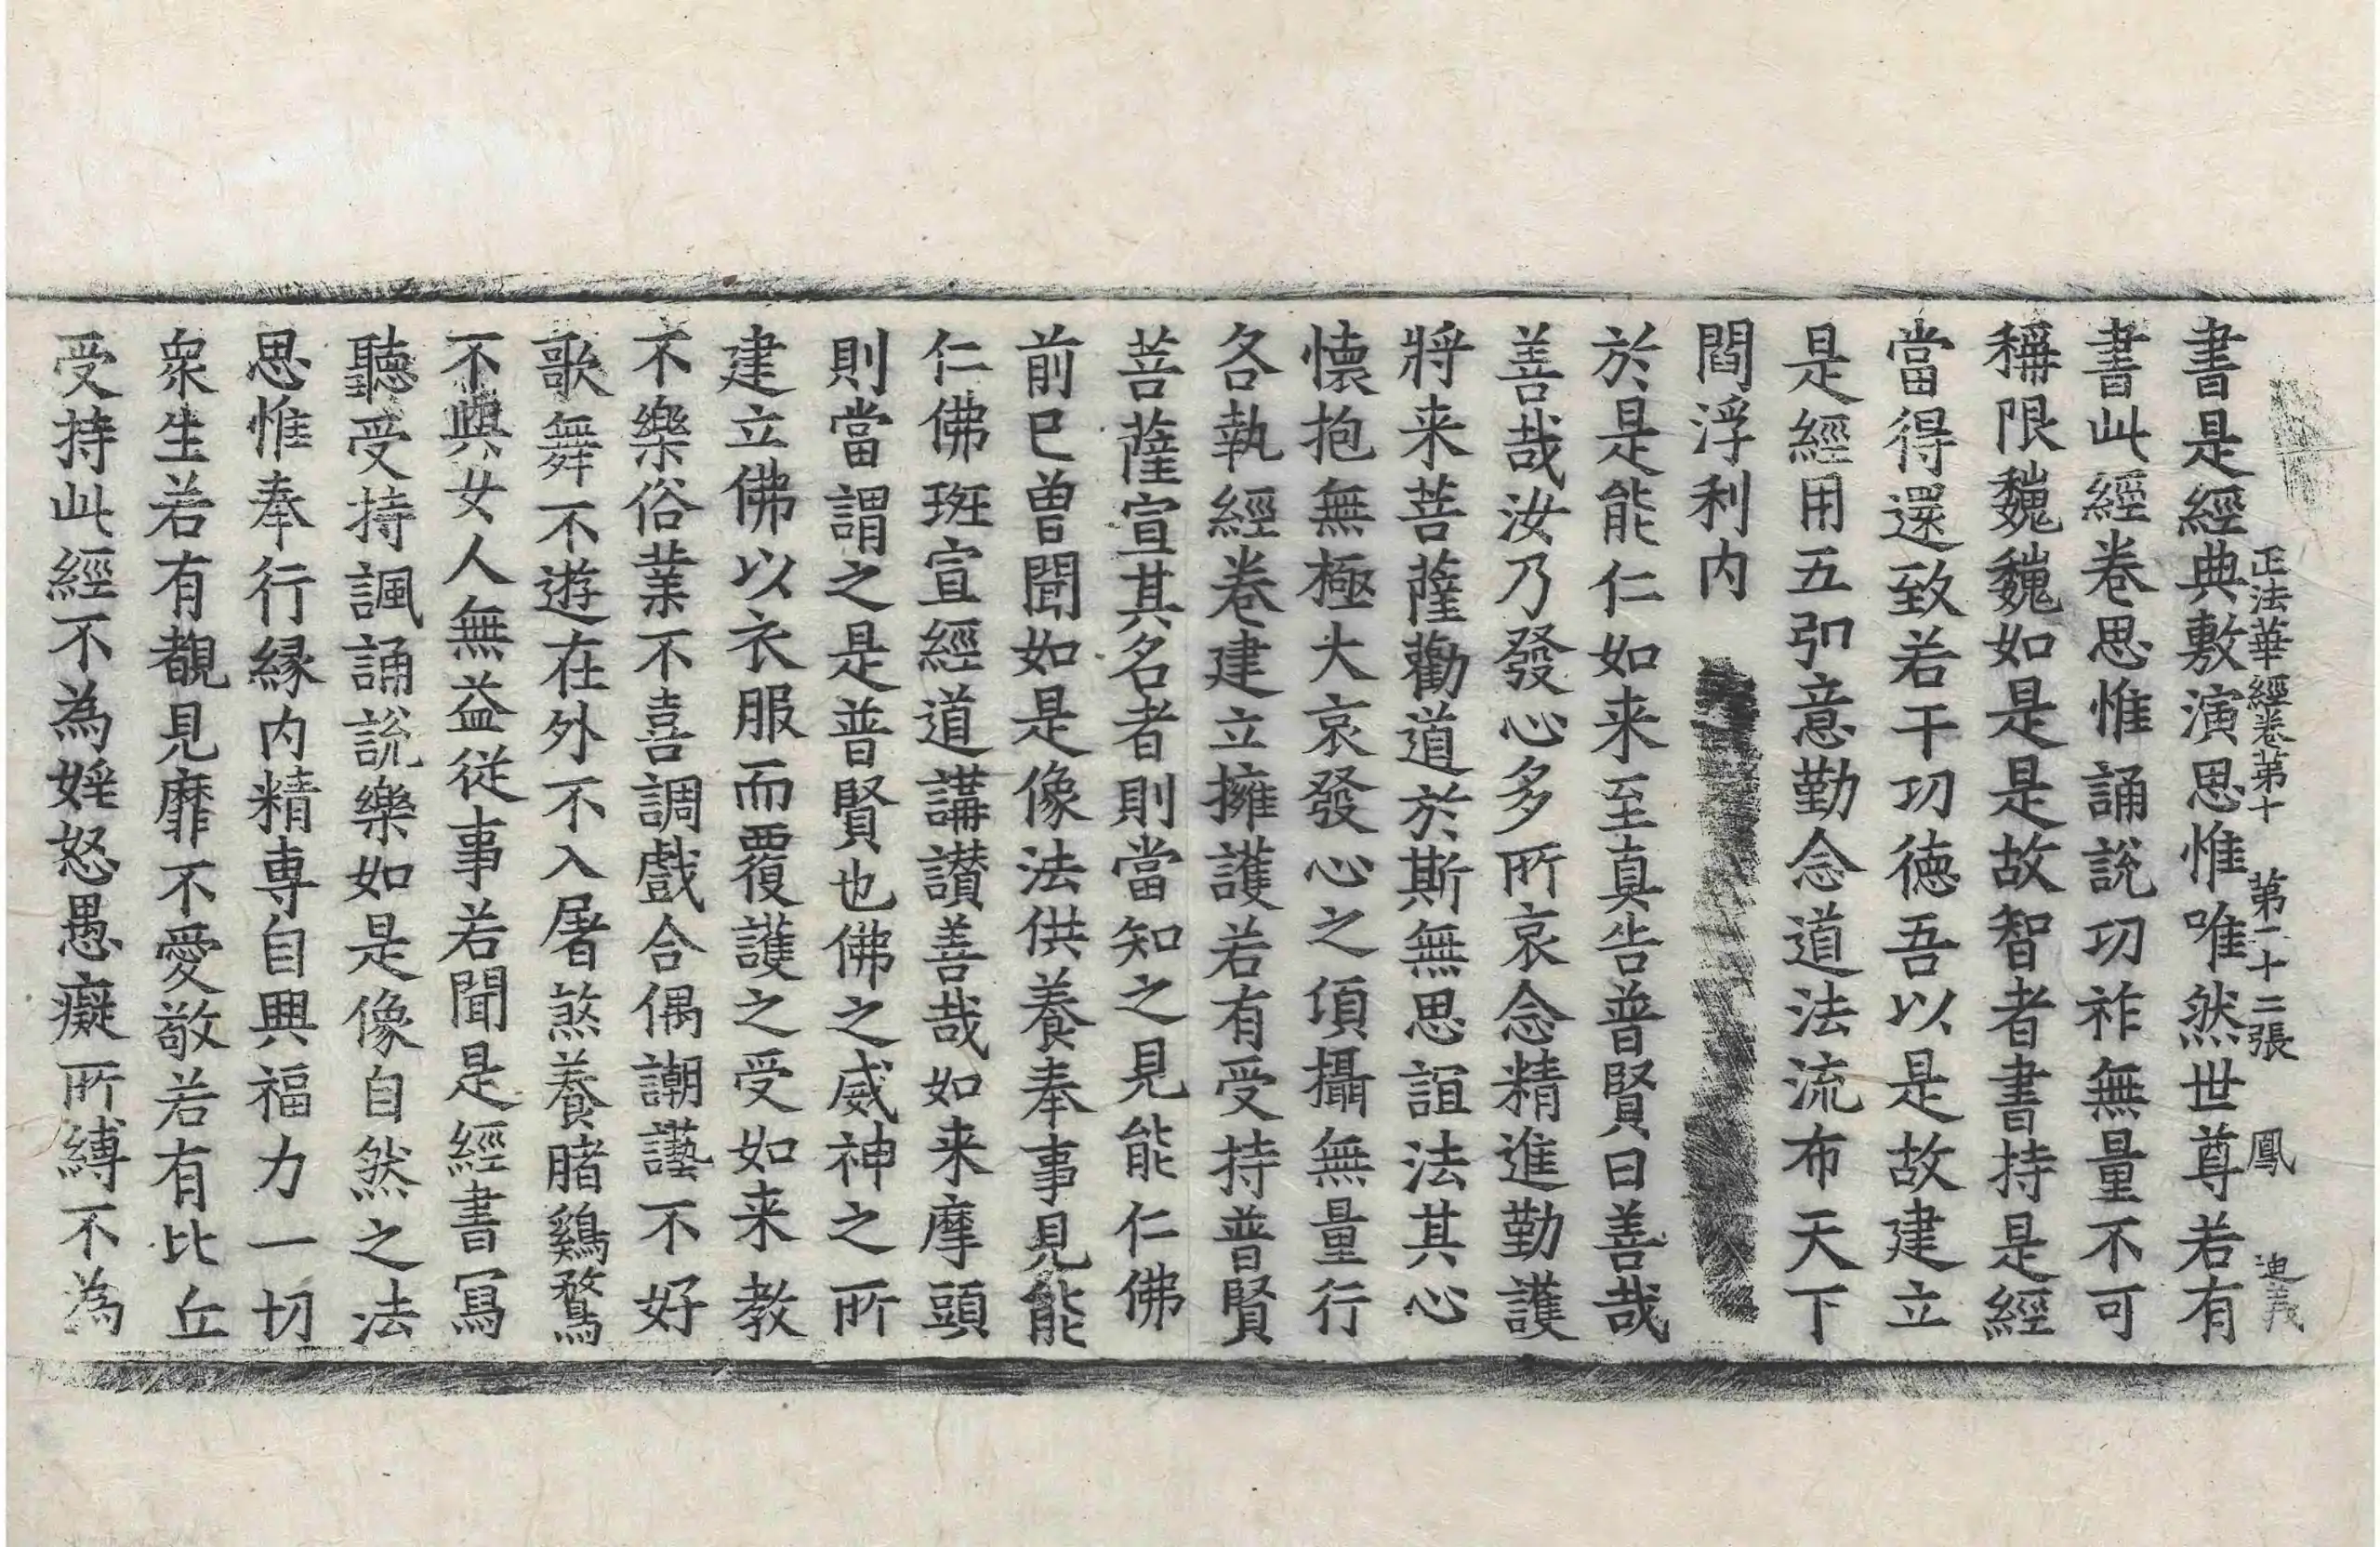 正法華經卷第十 第二十二張 鳳 迪義
書是經典敷演思惟唯然世尊若有
書此經卷思惟誦說功祚無量不可
稱限巍巍如是是故智者書持是經
當得還致若干功德吾以是故建立
是經用五引意勤念道法流布天下
閻浮利内
於是能仁如来至真告普賢曰善哉
善哉汝乃發心多所哀念精進勤護
將来菩薩勸道於斯無思誼法其心
懷抱無極大哀發心之頃攝無量行
各執經卷建立擁護若有受持普賢
菩薩宣其名者則當知之見能仁佛
前已曾聞如是像法供養奉事見能
仁佛班宣經道講讃善哉如来摩頭
則當謂之是普賢也佛之威神之所
建立佛以衣服而覆護之受如来教
不樂俗業不喜調戲合偶譀䜕不好
歌舞不遊在外不入屠煞養賭鷄鶩
不與女人無益從事若聞是經書寫
聽受持諷誦說樂如是像自然之法
思惟奉行緣内精專自興福力一切
衆生若有覩見靡不愛敬若有比丘
受持此經不為婬怒愚癡所縛不為